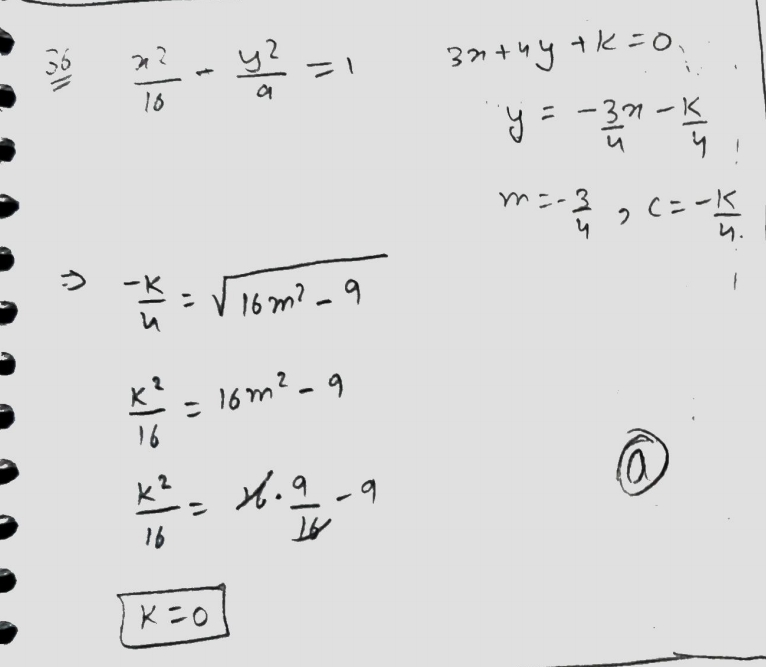 36 x²/16 - y²/9 = 1
3x + 4y + K = 0
y = -3x/4 - K/4
m = -3/4 , C = -K/4.
⇒ -K/4 = √(16m² - 9)
K²/16 = 16m² - 9
K²/16 = 16 · 9/16 - 9
K = 0
a